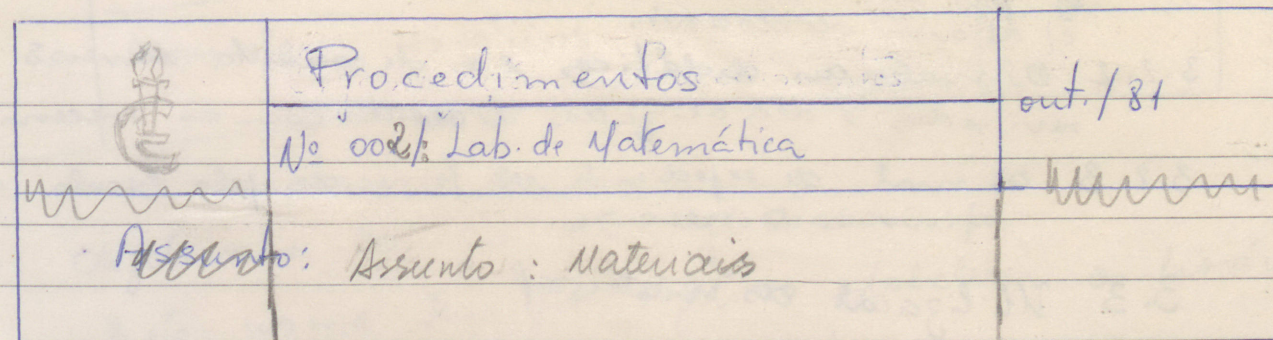 Procedimentos
out. / 81
Nº 002/: Lab. de Matemática
Assunto: Assunto : Materiais